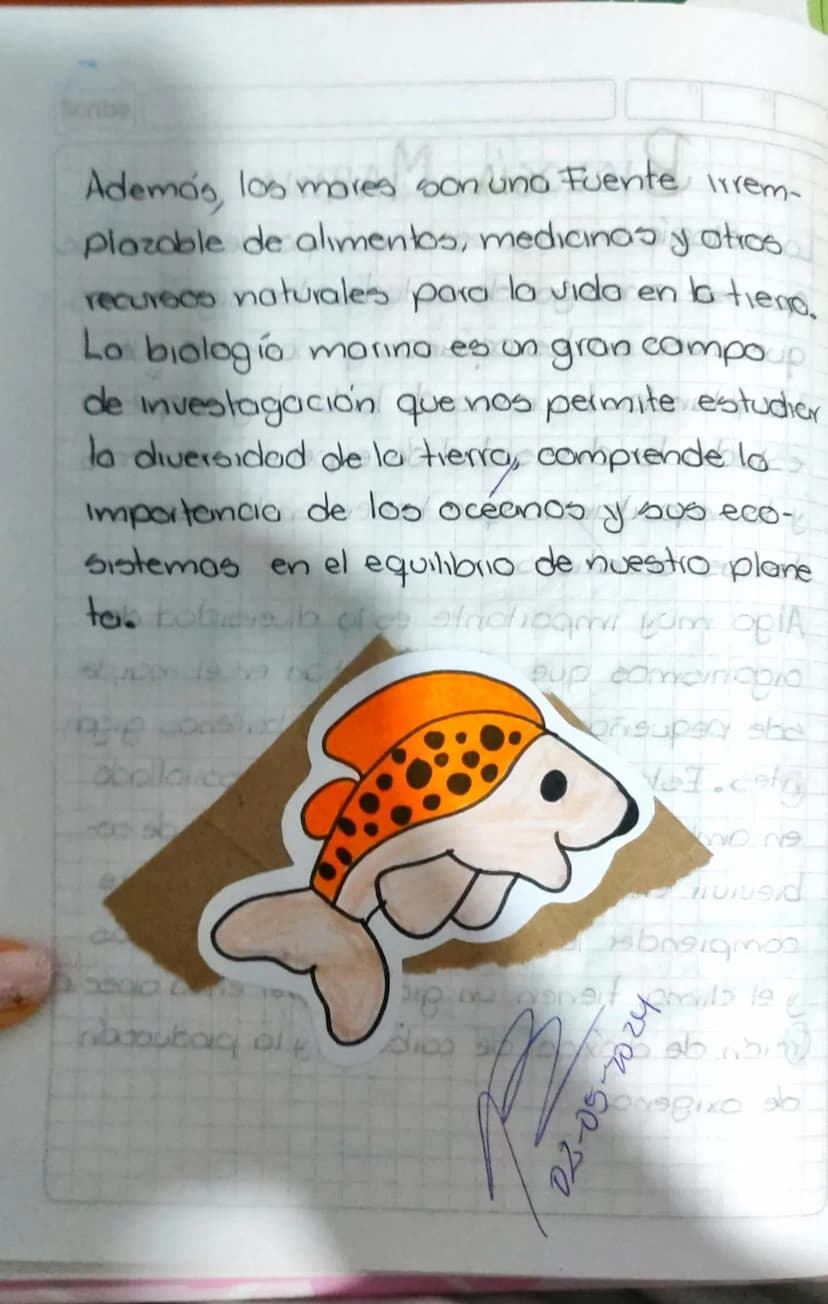 Scribe
Además, los mares son una Fuente irrem-
plazable de alimentos, medicinas y otros
recursos naturales para la vida en la tierra.
La biología marina es un gran campo
de investagación que nos permite estudier
la diversidad de la tierra, comprende la
importancia de los océanos y sus eco-
sistemas en el equilibrio de nuestro plane
ta.
02-05-2024